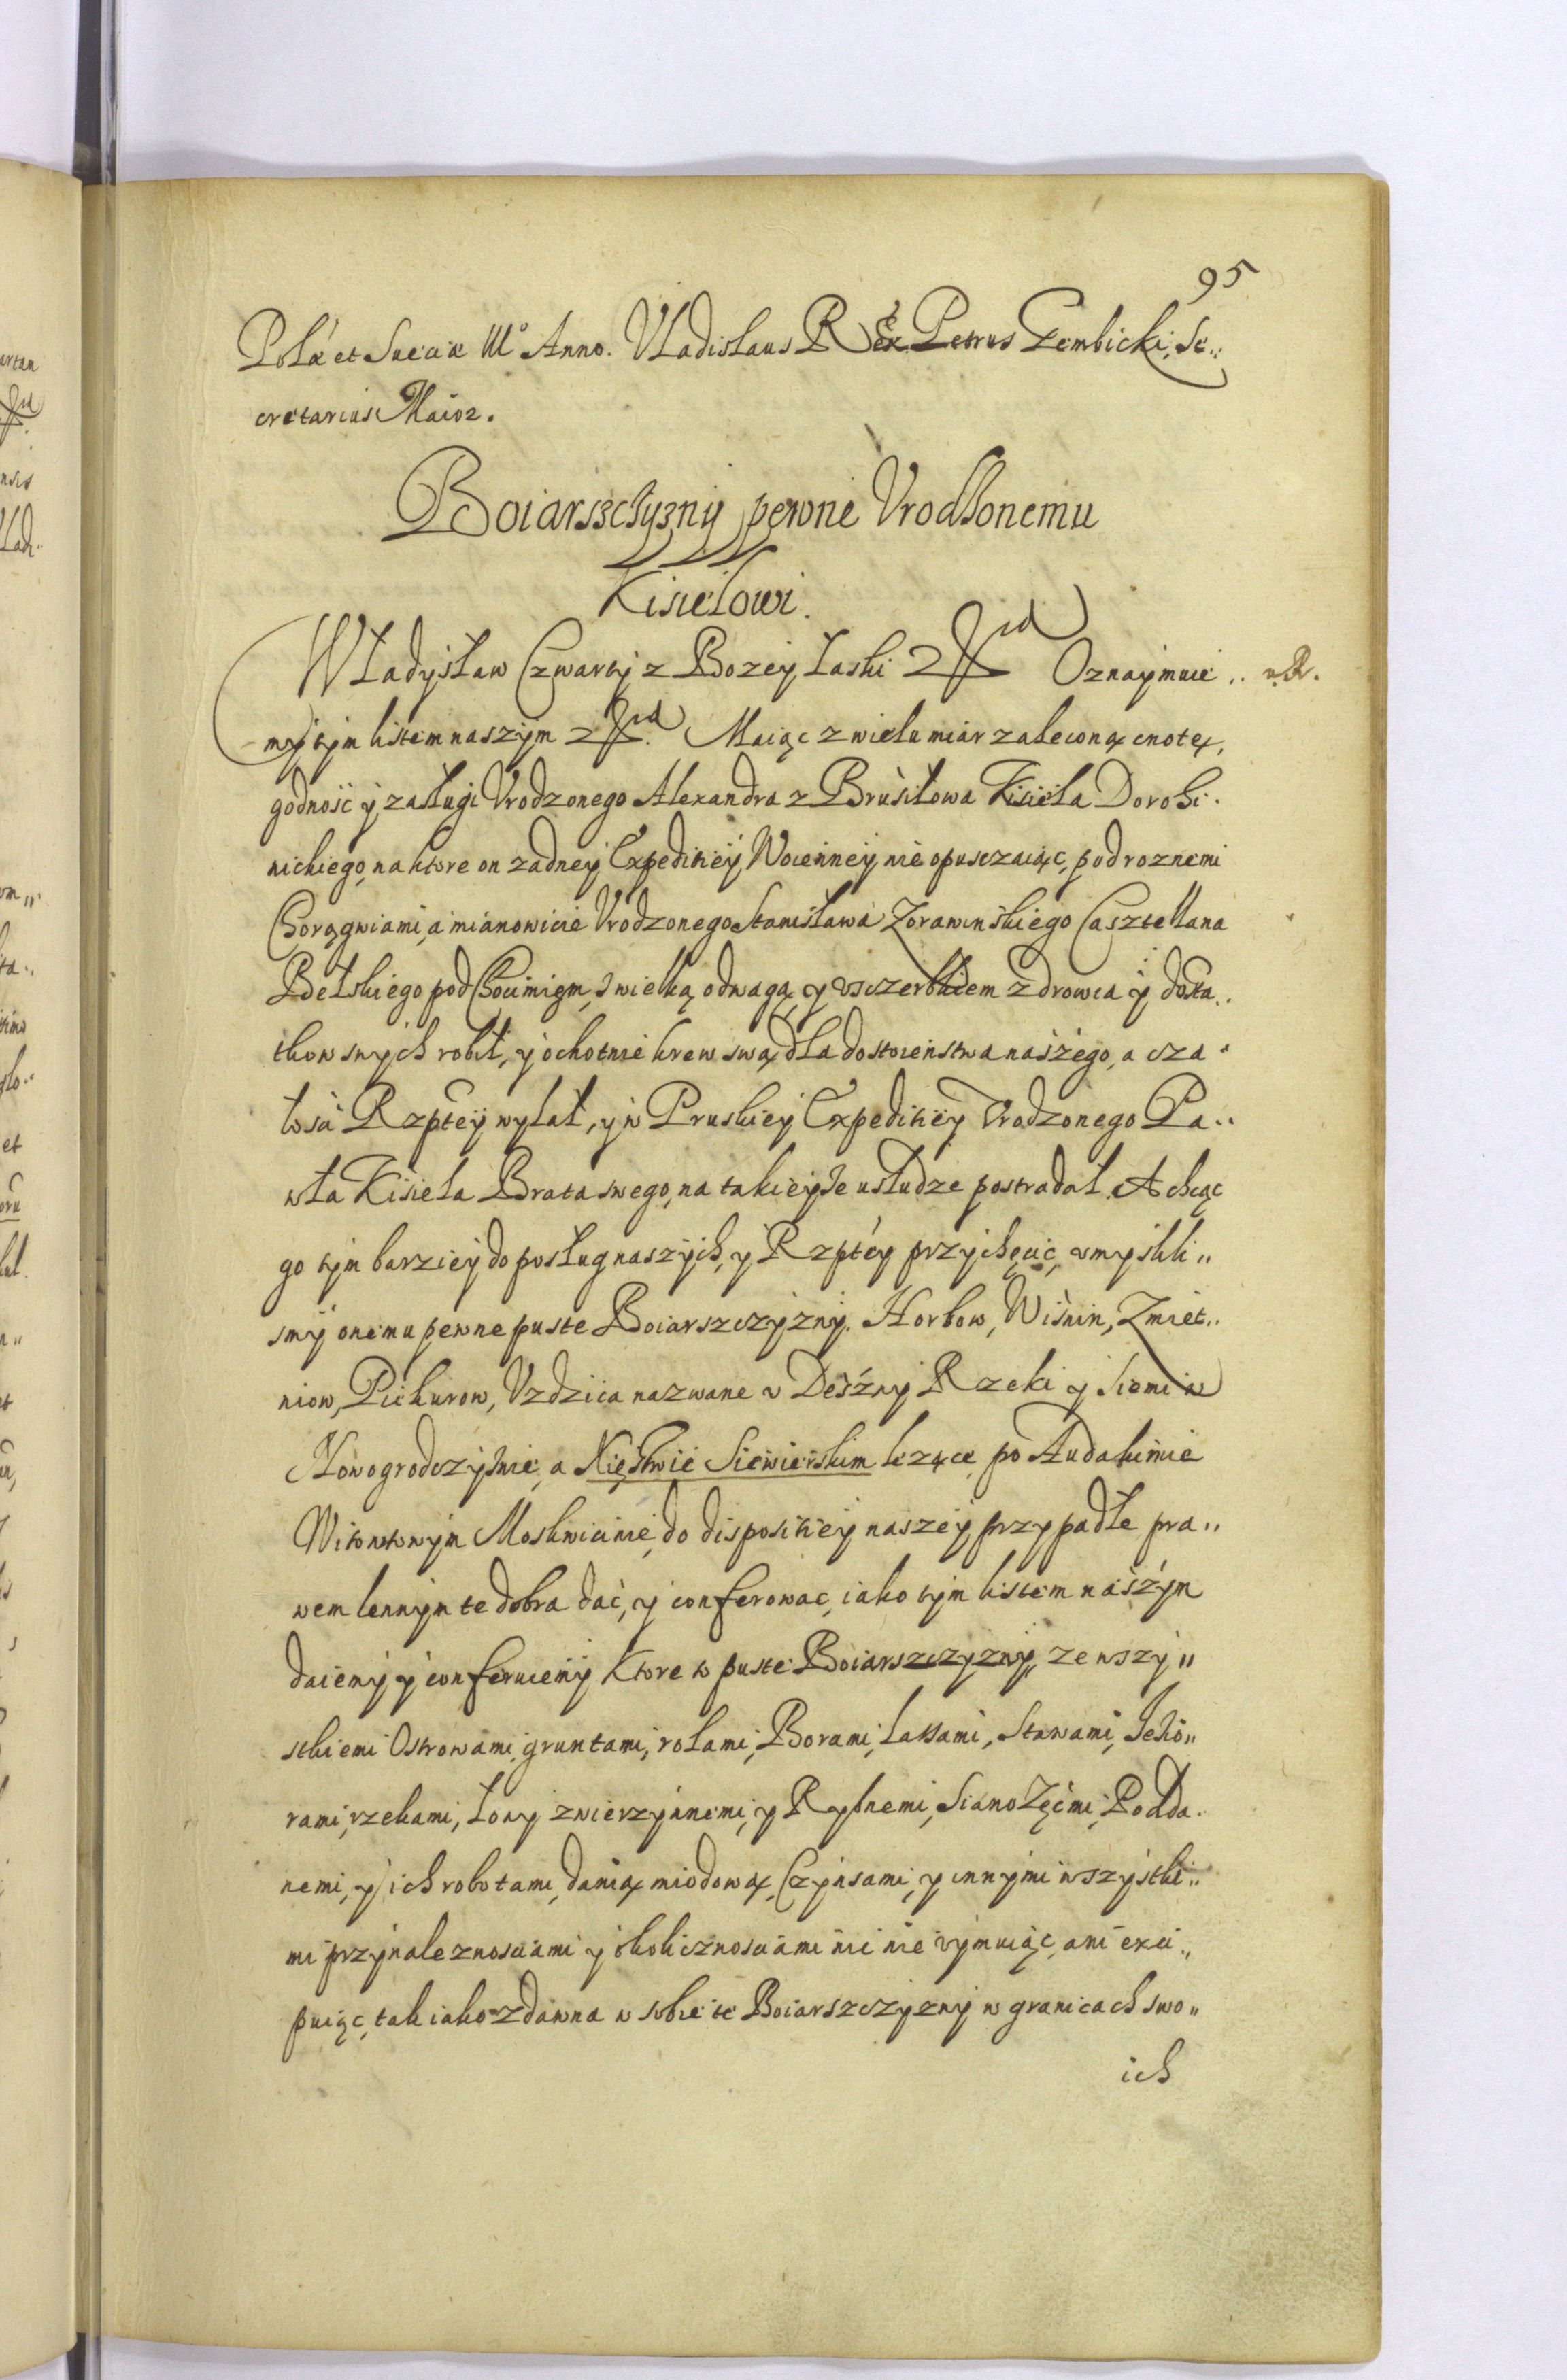 95
Polæ et Sueciæ IIIº Anno. Vladislaus Rex Petrus Gembicki, Se„
cretarius Maior.
Boiarszczyzny pewne Vrodzonemu
Kisielowi.
Władysław Czwarty z Bozey Łaski Oznaymuie„
my tym listem naszym Maiąc z wielu miar zaleconą cnotę,
godność y zasługi Vrodzonego Alexandra z Brusiłowa Kisiela Dorohi„
nickiego, na ktore on zadney Expeditiey Woienney nie opusczaiąc, pod roznemi
Chorągwiami, a mianowicie Vrodzonego Stanisława Zorawinskiego Casztellana
Bełskiego pod Chocimięm, z wielką odwagą, y vsczerbkiem zdrowia y dosta„
tkow swych robił, y ochotnie krew swą dla dostoieństwa naszego, a cza„
łosci Rzptey wylał, y w Pruskiey Expeditiey Vrodzonego Pa„
wła Kisiela Brata swego, na takieyze usłudze postradał. A chcąc
go tym barziey do posług naszych, y Rzptey przychęcić, vmyslili„
smy onemu pewne puste Boiarszczyzny. Horbow, Wisnin, Zmiet„
niow, Pickurow, Vzdzica nazwane v Deszny Rzeki y Siemi w
Nowogrodczyznie, a Xięstwie Siewierskim lezące, po Audakimie
Witowtowym Moskwicinie, do dispositiey naszey przypadłe pra„
wem lennym te dobra dać, y conferowac, iako tym listem naszym
daiemy y conferuiemy Ktore to puste Boiarszczyzny, ze wszy„
stkiemi Ostrowami, gruntami, rolami, Borami, Lassami, Stawami, Jezio„
rami, rzekami, Łowy zwierzynnemi, y Rybnemi, Sianozęćmi, Podda„
nemi, y ich robotami, danią miodową, Czynsami, y innymi wszystki„
mi przynaleznosciami y okolicznosciami nic nie vymuiąc, ani exci„
puiąc, tak iako zdawna w sobie te Boiarszczyzny w granicach swo„
ich